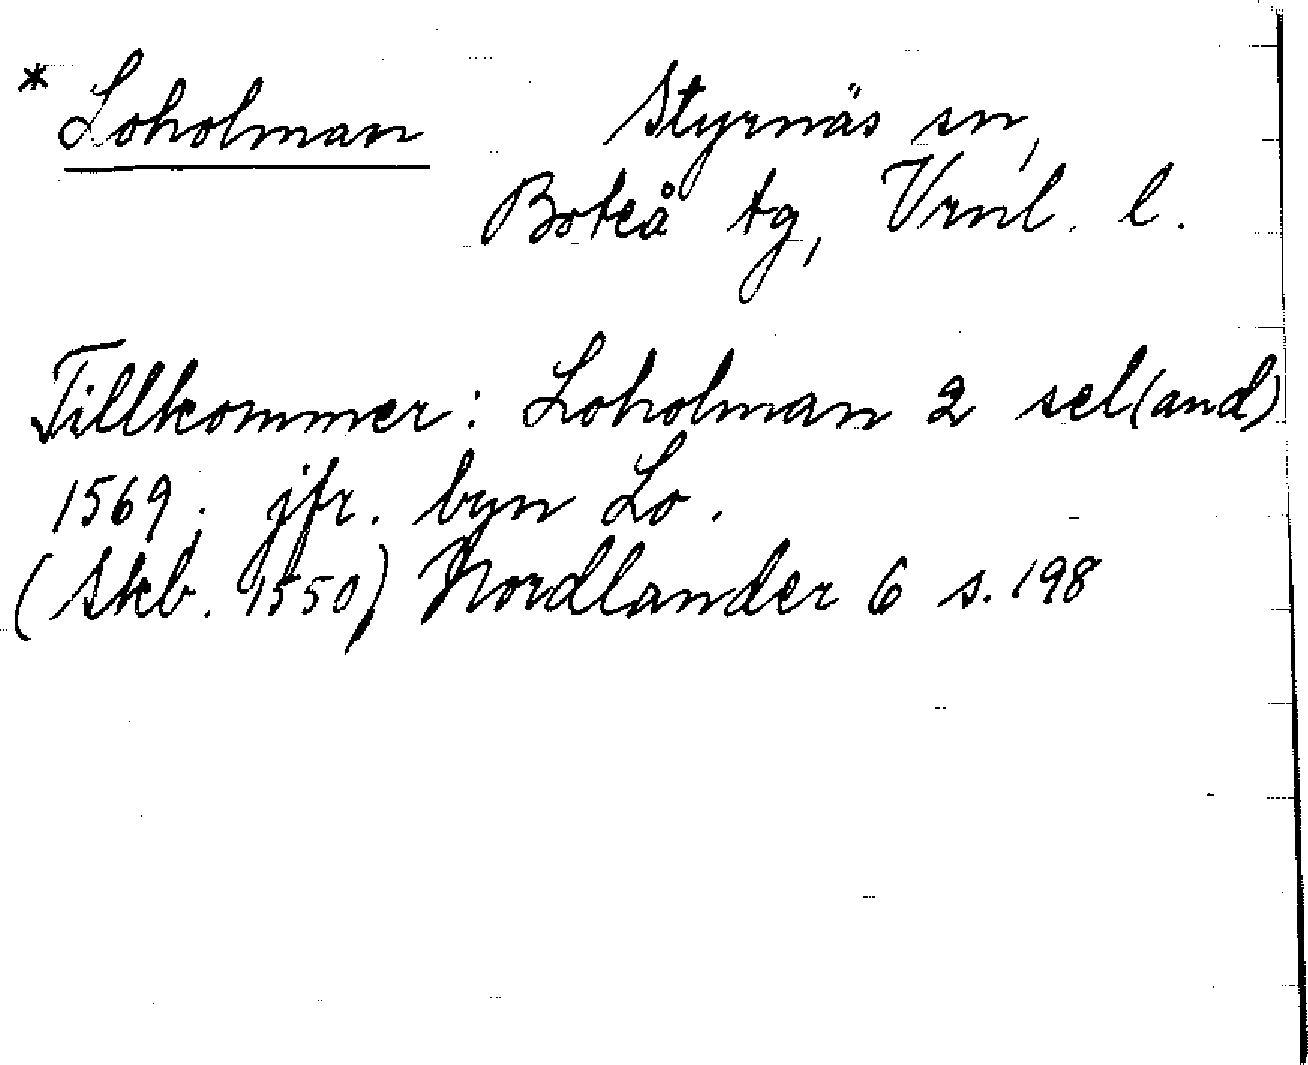 * Loholman Styrnäs sn,
Boteå tg, Vrnl. l.
Tillkommer: Loholman 2 sel(and)
1569; jfr. byn Lo.
(Skb. 1550) Nordlander 6 s. 198